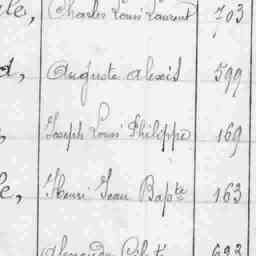 Charles Louis Laurent 703
Auguste Alexis 599
Joseph Louis Philippe 169
Henri Jean Bapte 163